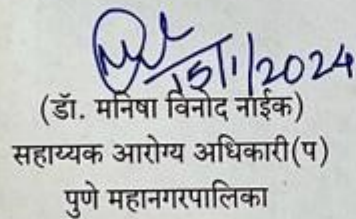 15/1/2024
(डॉ. मनिषा विनोद नाईक)
सहाय्यक आरोग्य अधिकारी(प)
पुणे महानगरपालिका